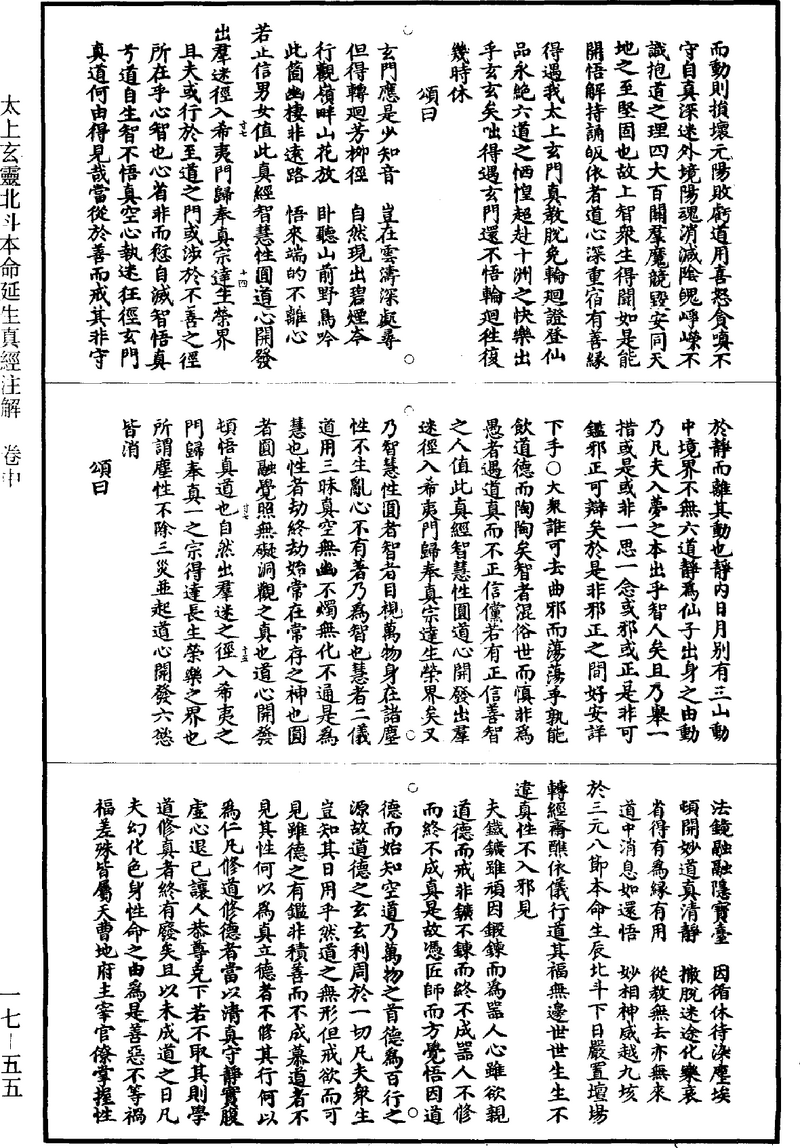 而動則損壞元陽敗虧道用喜怒貪嗔不
守自真深迷外境陽魂消滅陰魄崢嶸不
識抱道之理四大百關羣魔競毀安同天
地之至堅固也故上智衆生得聞如是能
開悟解持誦皈依者道心深重宿有善緣
得遇我太上玄門真教脫免輪迴證登仙
品永絕六道之恓惶超赴十洲之快樂出
乎玄玄矣咄得遇玄門還不悟輪迴往復
幾時休
頌曰
玄門應是少知音　豈在雲濤深處尋
但得轉迴芳柳徑　自然現出碧煙岑
行觀嶺畔山花放　卧聽山前野鳥吟
此箇幽棲非遠路　悟來端的不離心
若止信男女值此真經智慧性圓道心開發
出羣迷徑入希夷門歸奉真宗達生榮界
且夫或行於至道之門或涉於不善之徑
所在乎心智也心着非而愆自滅智悟真
兮道自生智不悟真空心執迷狂徑玄門
真道何由得見哉當從於善而戒其非守
於靜而離其動也靜内日月别有三山動
中境界不無六道靜爲仙子出身之由動
乃凡夫入夢之本出乎智人矣且乃舉一
措或是或非一思一念或邪或正是非可
鑑邪正可辯矣於是非邪正之間好安詳
下手○大衆誰可去曲邪而蕩蕩乎孰能
飲道德而陶陶矣智者混俗世而慎非爲
愚者遇道真而不正信儻若有正信善智
之人值此真經智慧性圓道心開發出羣
迷徑入希夷門歸奉真宗達生榮界矣又
乃智慧性圓者智者目視萬物身在諸塵
性不生亂心不有著乃爲智也慧者二儀
道用三昧真空無幽不燭無化不通是爲
慧也性者劫終劫始常在常存之神也圓
者圓融覺照無礙洞觀之真也道心開發
頓悟真道也自然出羣迷之徑入希夷之
門歸奉真一之宗得達長生榮樂之界也
所謂塵性不除三災並起道心開發六慾
皆消
頌曰
法鏡融融隱寶臺　因循休待染塵埃
頓開妙道真清靜　撇脫迷途化樂哀
省得有爲緣有用　從教無去亦無來
道中消息如還悟　妙相神威越九垓
於三元八節本命生辰北斗下日嚴置壇場
轉經齋醮依儀行道其福無邊世世生生不
違真性不入邪見
夫鐵鑛雖頑因鍛鍊而爲器人心雖欲親
道德而戒非鑛不鍊而終不成器人不修
而終不成真是故憑匠師而方覺悟因道
德而始知空道乃萬物之首德爲百行之
源故道德之玄玄利周於一切凡夫衆生
豈知其日用乎然道之無形但戒欲而可
見雖德之有鑑非積善而不成慕道者不
見其性何以爲真立德者不修其行何以
爲仁凡修道修德者當以清真守靜實腹
虛心退已讓人恭尊克下若不取其則學
道修真者終有廢矣且以未成道之日凡
夫幻化色身性命之由爲是善惡不等禍
福差殊皆屬天曹地府主宰官僚掌握性
太上玄靈北斗本命延生真經注解　卷中
一七－五五
寸七
十四
寸七
十五